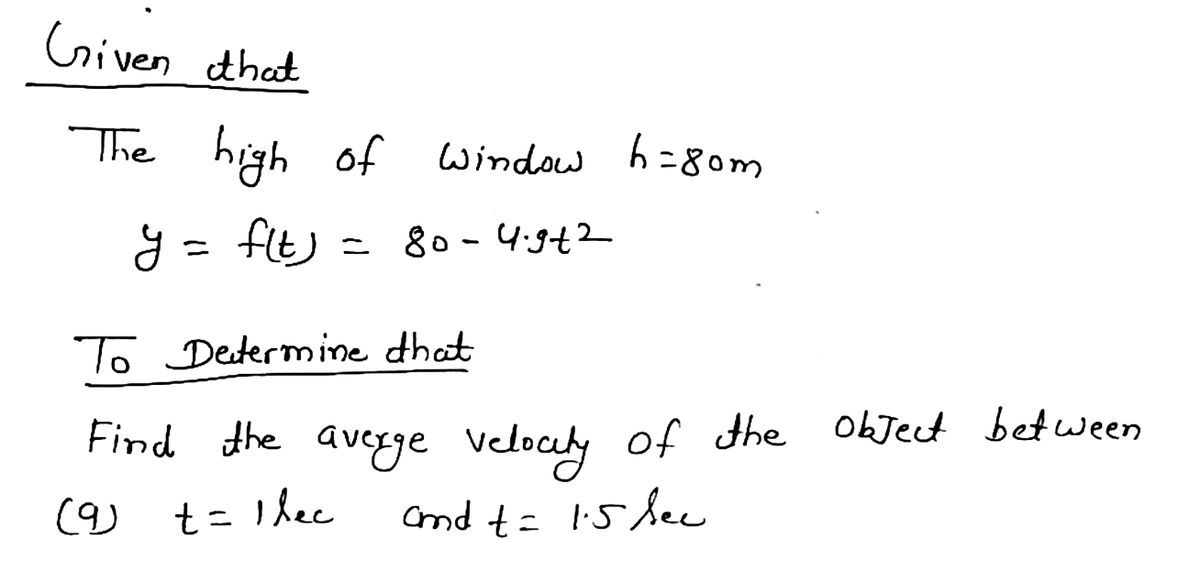 Given that
The high of window h=80m
y = f(t) = 80 - 4.9t2
To Determine that
Find the averge velocity of the object between
(a) t = 1 sec and t = 1.5 sec